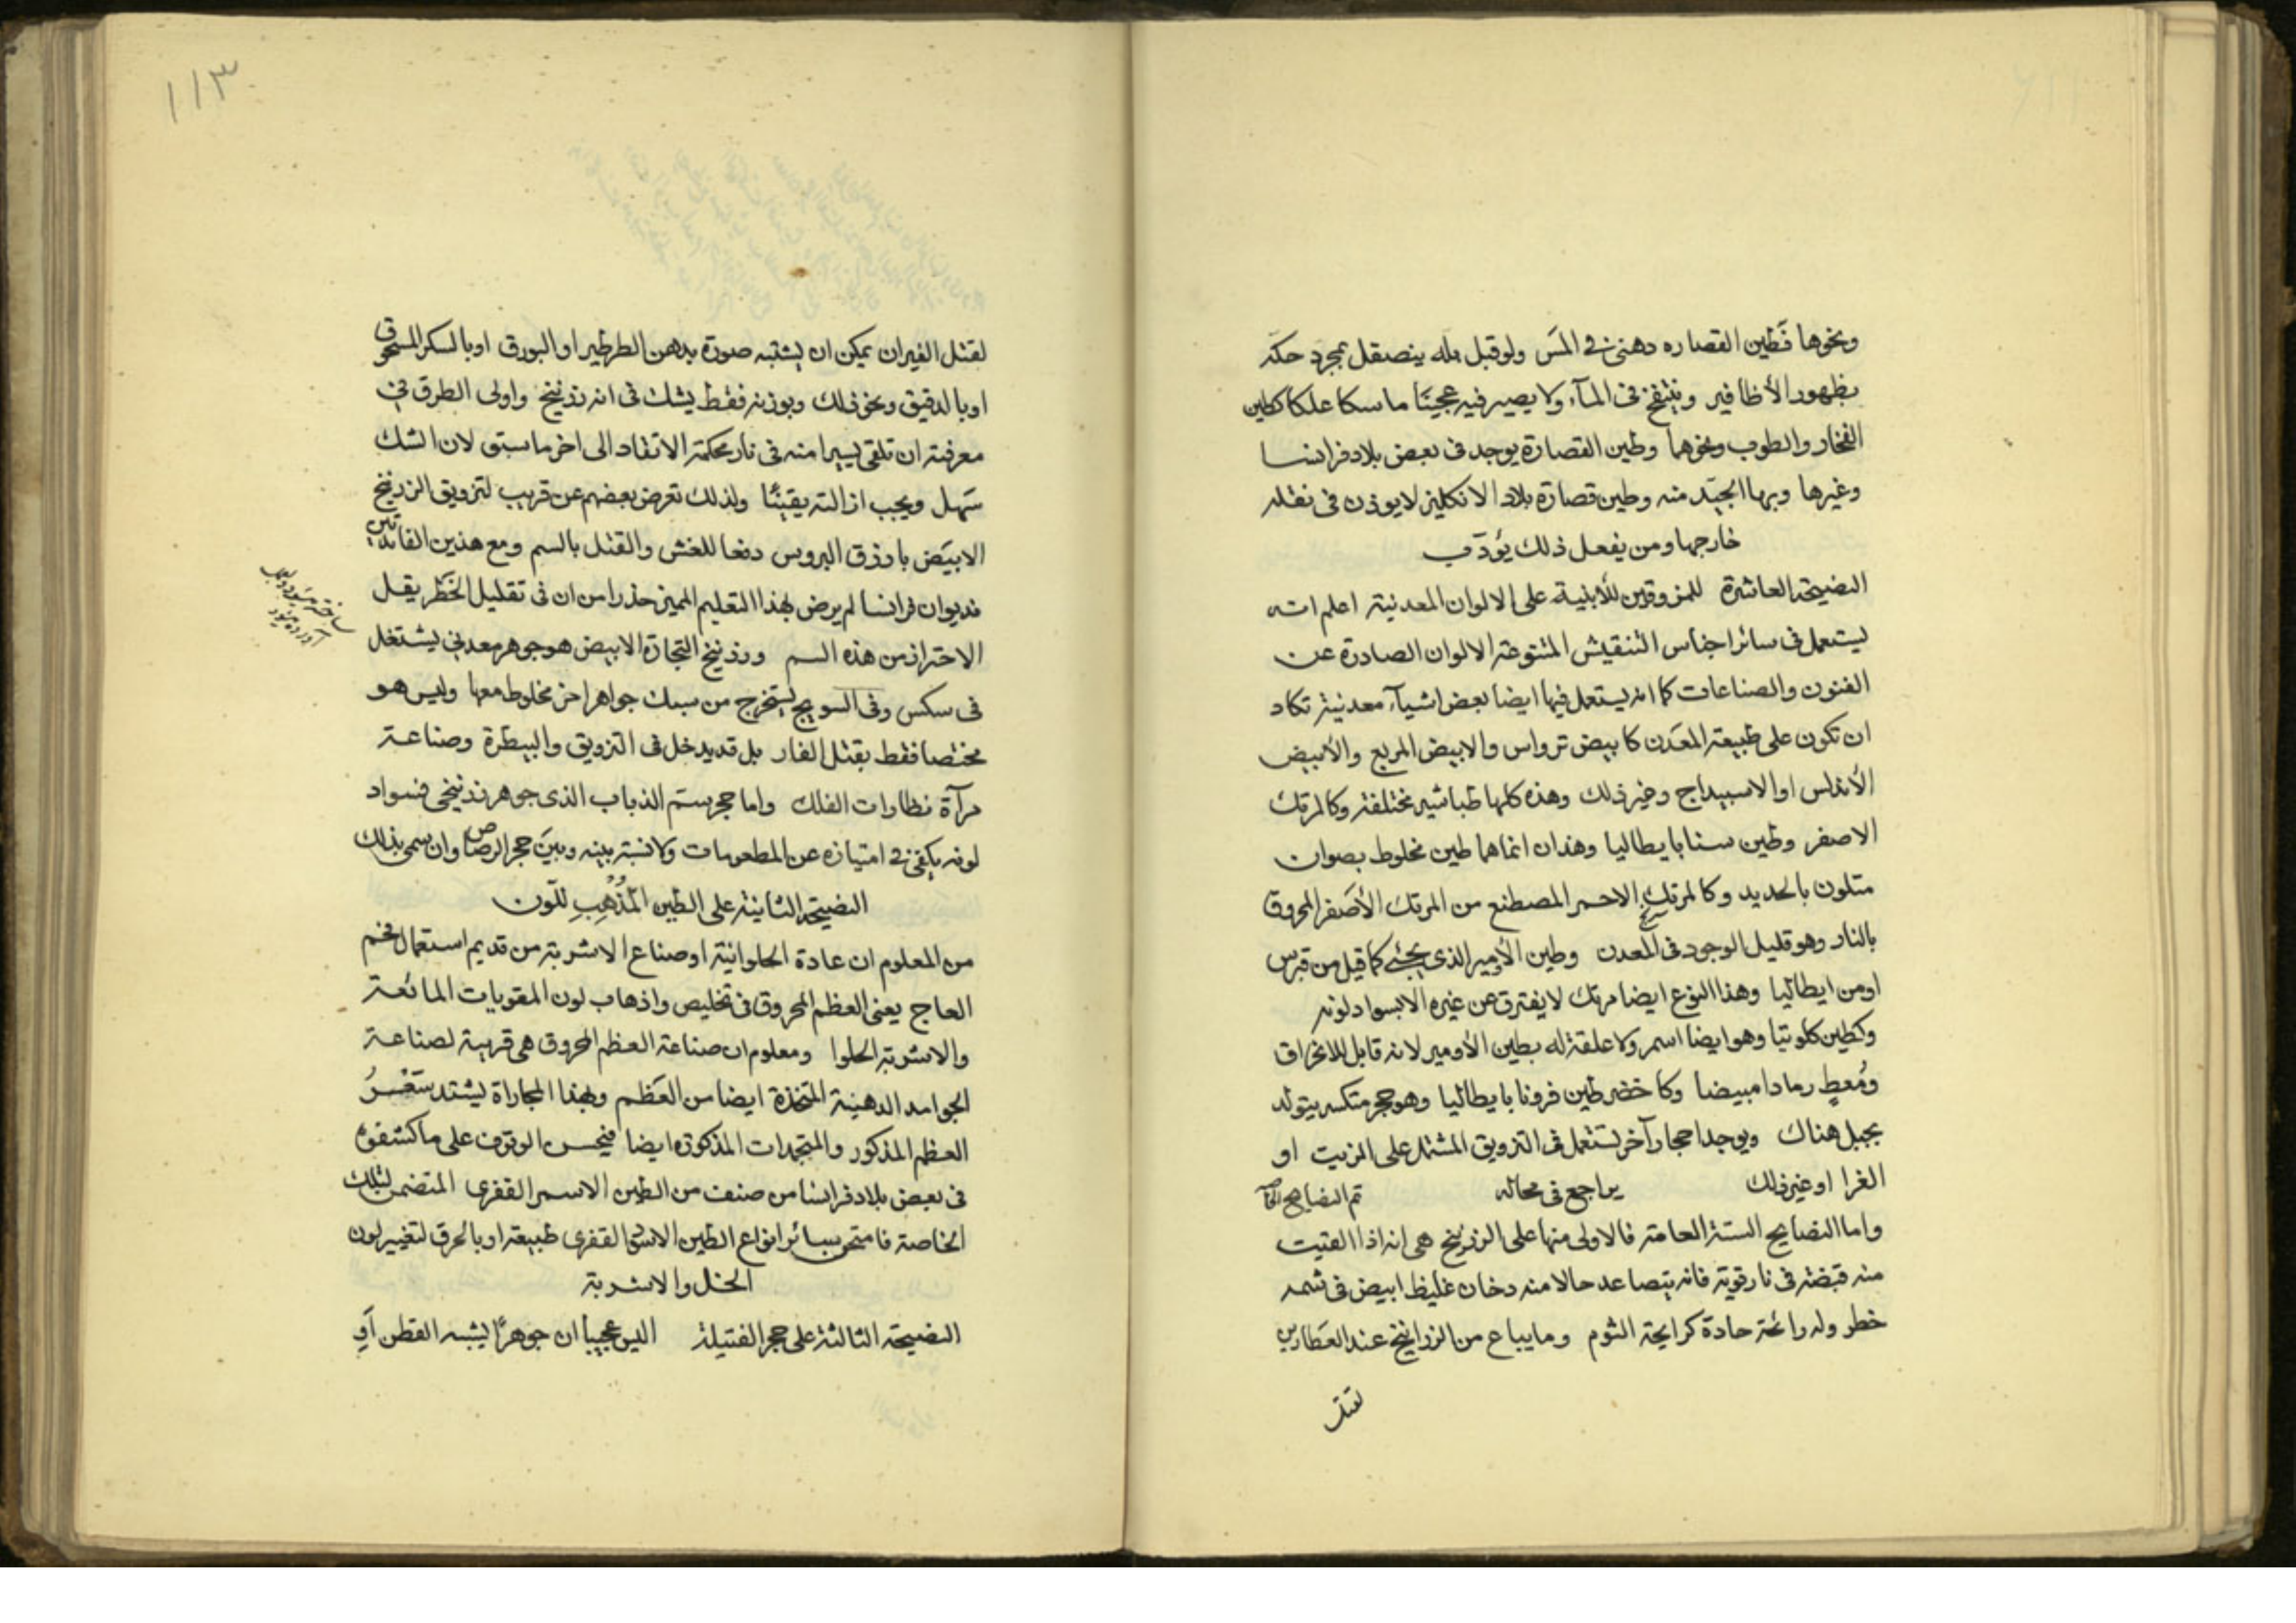 ونحوها فطين القصاره دهنى فى المس ولو قبل بله ينصقل بمجرد حكه
بظهور الأظافير وينتفخ فى المآء ولا يصير فيه عجينا ماسكا علكا كطين
الفخار والطوب ونحوها وطين القصارة يوجد فى بعض بلاد فرانسا
وغيرها وبها الجيد منه وطين قصارة بلاد الانكليز لا يوذن فى نقله
خارجها ومن يفعل ذلك يؤدب
النصيحة العاشرة للمزوقين للأبنية على الالوان المعدنية اعلم انه
يستعمل فى سائر اجناس التنقيش المتنوعة الالوان الصادرة عن
الفنون والصناعات كما انه يستعمل فيها ايضا بعض اشيآء معدنية تكاد
ان تكون على طبيعة المعدن كابيض ترواس والابيض المربع والأبيض
الأندلس او الاسبيداج وغير ذلك وهذه كلها طباشير مختلفة وكالمرتك
الاصفر وطين سنا بايطاليا وهذان انما هما طين مخلوط بصوان
متلون بالحديد وكالمرتك الاحمر المصطنع من المرتك الأصفر المحروق
بالنار وهو قليل الوجود فى المعدن وطين الأمير الذى يجئ كما قيل من قبرس
او من ايطاليا وهذا النوع ايضا مرتك لا يفترق عن غيره الا بسواد لونه
وكطين كلونيا وهو ايضا اسمر ولا علقة له بطين الأومير لانه قابل للانحراق
ومعط رمادا مبيضا وكاخضر طين فرونا بايطاليا وهو حجر متكسر يتولد
بجبل هناك ويوجد احجار آخر تستعمل فى التزويق المشتمل على الزيت او
الغرا او غير ذلك يراجع فى محاله تم النصايح
واما النصايح الستة العامة فالاولى منها على الزرنيخ هى انه اذا القيت
منه قبضة فى نار قوية فانه يتصاعد حالا منه دخان غليظ ابيض فى شمه
خطر وله رائحة حادة كرايحة الثوم وما يباع من الزرانيخ عند العطارين
لقتل
١١٣
لقتل الفيران يمكن ان يشتبه صورة بدهن الطرطير او البورق او بالسكر المسحوق
او بالدقيق ونحو ذلك وبوزنه فقط يشك فى انه زرنيخ واولى الطرق فى
معرفته ان تلقى يسيرا منه فى نار محكمة الاتقاد الى اخر ما سبق لان الشك
سهل ويجب ازالته يقينا ولذلك تعرض بعضهم عن قريب لتزويق الزرنيخ
الابيض بازرق البروس دفعا للغش والقتل بالسم ومع هذين الفائدتين
فديوان فرانسا لم يرض بهذا التعليم المميز حذرا من ان فى تقليل الخطر يقل
الاحتراز من هذه السم وزرنيخ التجارة الابيض هو جوهر معدنى يشتغل
فى سكس وفى السويج يستخرج من سبك جواهر اخر مخلوط معها وليس هو
مختصا فقط بقتل الفار بل قد يدخل فى التزويق والبيطرة وصناعة
مرآة نظارات الفلك واما حجر سم الذباب الذى جوهر زرنيخى فسواد
لونه يكفى فى امتيازه عن المطعومات ولا نسبة بينه وبين حجر الرصاص وان سمى بذلك
النصيحة الثانية على الطين المذهب للون
من المعلوم ان عادة الحلوانية او صناع الاشربة من قديم استعمال فحم
العاج يعنى العظم المحروق فى تخليص واذهاب لون المقويات المائعة
والاشربة الحلوا ومعلوم ان صناعة العظم المحروق هى قريبة لصناعة
الجوامد الدهنية المتخذة ايضا من العظم وبهذا المجاراة يشتد سعر
العظم المذكور والمتجمدات المذكوره ايضا فيحسن الوقوف على ما كشفوه
فى بعض بلاد فرانسا من صنف من الطين الاسمر القفرى المتضمن لتلك
الخاصة فامتحن بسائر انواع الطين الاسمر القفرى طبيعة او بالحرق لتغيير لون
الخل والاشربة
النصيحة الثالثة على حجر الفتيلة اليس عجيبا ان جوهرا يشبه القطن او